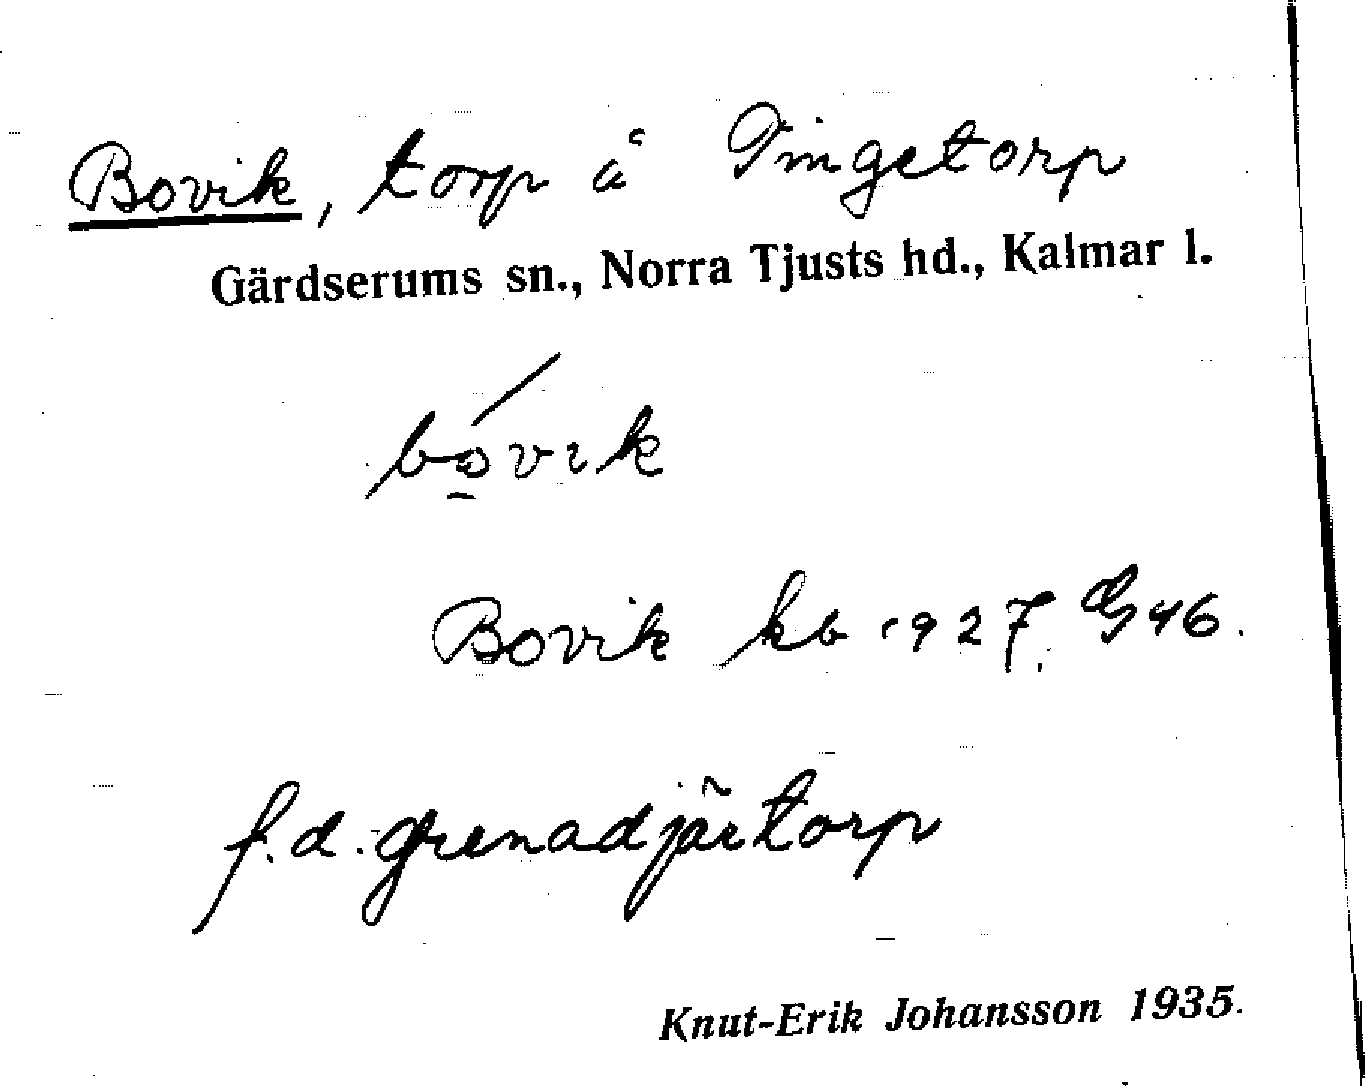 Bovik, torp å Tingetorp
Gärdserums sn., Norra Tjusts hd., Kalmar l.
bo̱vik
Bovik kb 1927. G 46.
f.d. grenadjärtorp
Knut-Erik Johansson 1935.